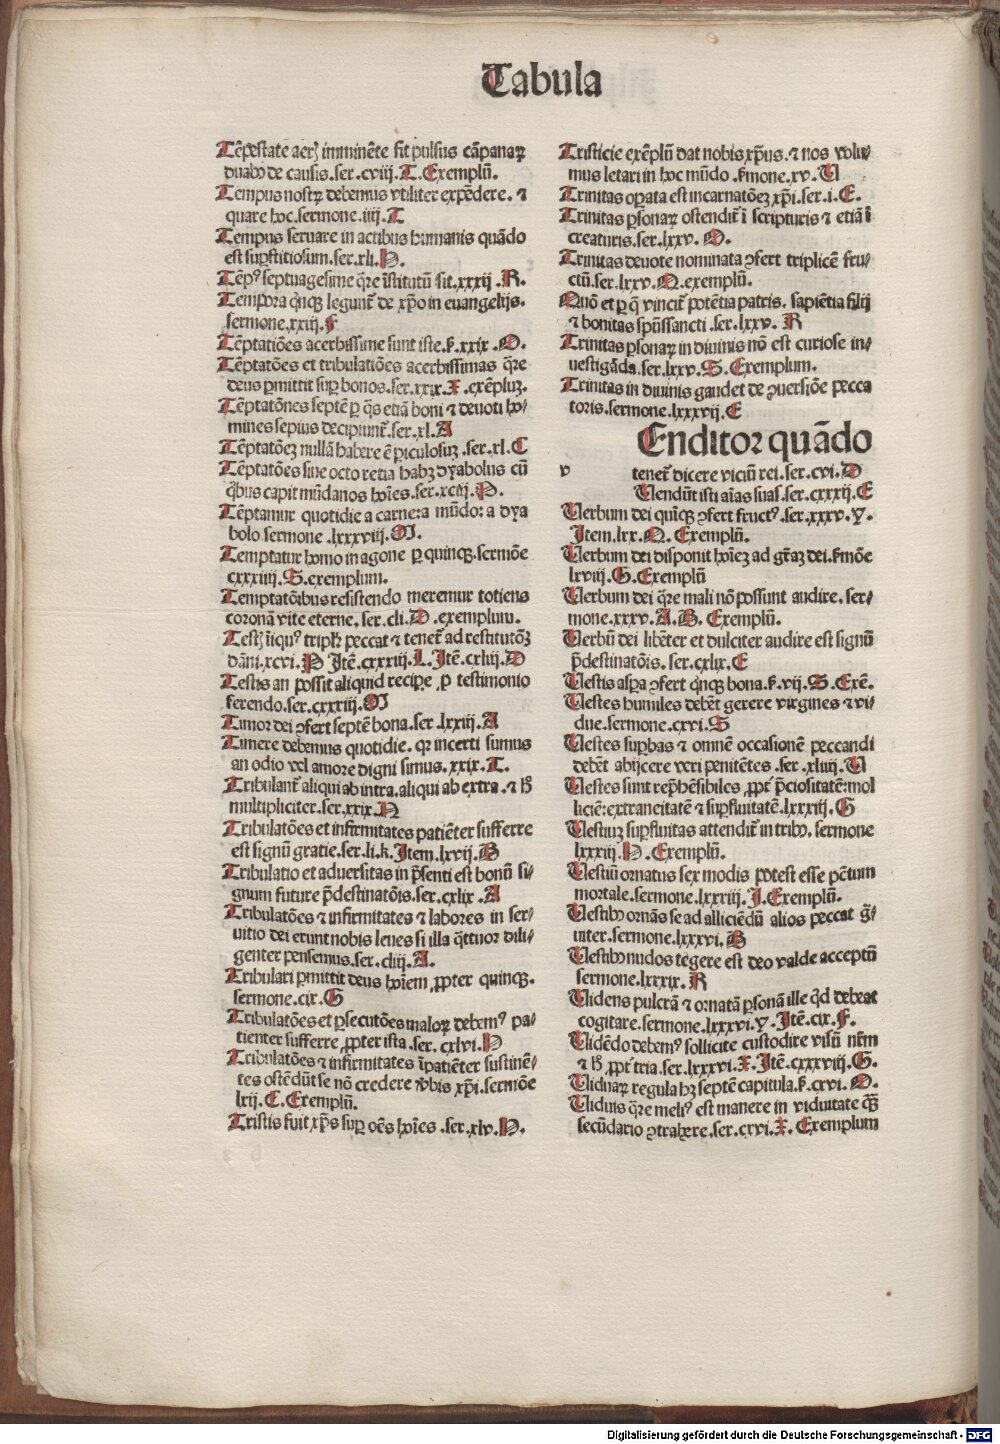 Tabula
Tēpestate aerꝭ imminēte fit pulsus cāpanaꝝ
duabꝰ de causis.ser.cviij.T.Exemplū.
Tempus nostꝝ debemus vtiliter expēdere.⁊
quare hoc.sermone.iiij.T
Tempus seruare in actibus humanis quādo
est suꝑstitiosum.ser.xli.P.
Tēpꝰ septuagesime q̄re īstitutū sit.xxxij.R.
Tempora qͥnqꝫ legunt̄ de xp̄o in euangelijs.
sermone.xxiij.F
Tēptatiōes acerbissime sunt iste.ẜ.xxix.O.
Tēptatōes et tribulatiōes acerbissimas q̄re
deus ꝑmittit suꝑ bonos.ser.xxix.X.exēpluꝫ.
Tēptatōnes septē ꝑ q̄s etiā boni ⁊ deuoti ho⸗
mines sepius decipiunt̄.ser.xl.A
Tēptatōeꝫ nullā habere ē ꝑiculosuꝫ.ser.xl.C
Tēptatōes siue octo retia habꝫ dyabolus cū
qͥbus capit mūdanos hoīes.ser.xciij.P.
Tēptamur quotidie a carne:a mūdo:a dya
bolo sermone.lxxxviij.M.
Temptatur homo in agone ꝑ quinqꝫ.sermōe
cxxxiiij.S.exemplum.
Temptatōibus resistendo meremur totiens
coronā vite eterne.ser.cli.D.exemplum.
Testꝭ īiquꝰ triplr̄ peccat ⁊ tenet̄ ad restitutōꝫ
dāni.xcvi.P Itē.cxxxiij.L.Itē.cxliij.D
Testis an possit aliquid recipe ꝓ testimonio
ferendo.ser.cxxxiij.M
Timor dei ꝯfert septē bona.ser.lxxiij.A
Timere debemus quotidie.qꝛ incerti sumus
an odio vel amore digni simus.xxix.T.
Tribulant̄ aliqui ab intra.aliqui ab extra.⁊ hꝰ
multipliciter.ser.xxix.N
Tribulatōes et infirmitates patiēter sufferre
est signū gratie.ser.li.k.Item.lxvij.B
Tribulatio et aduersitas in p̄senti est bonū si⸗
gnum future p̄destinatōis.ser.cxlix.A
Tribulatōes ⁊ infirmitates ⁊ labores in ser⸗
uitio dei erunt nobis leues si illa q̄ttuor dili⸗
genter pensemus.ser.cliij.A.
Tribulari ꝑmittit deus hoīem ꝓpter quinqꝫ.
sermone.cix.G
Tribulatōes et ꝑsecutōes maloꝝ debemꝰ pa⸗
tienter sufferre ꝓpter ista.ser.cxlvi.P
Tribulatōes ⁊ infirmitates īpatiēter sustinē⸗
tes ostēdūt se nō credere v̄bis xp̄i.sermōe
lxij.C.Exemplū.
Tristis fuit xp̄s suꝑ oēs hoīes.ser.xlv.P.
Tristicie exēplū dat nobis xp̄us.⁊ nos volu⸗
mus letari in hoc mūdo.ẜmone.xv.U
Trinitas oꝑata est incarnatōeꝫ xp̄i.ser.i.E.
Trinitas ꝑsonaꝝ ostendit̄ ī scripturis ⁊ etiā ī
creaturis.ser.lxxv.O.
Trinitas deuote nominata ꝯfert triplicē fru⸗
ctū.ser.lxxv.N.exemplū.
Quō et ꝑ q̄ vincit̄ potētia patris. sapiētia filij
⁊ bonitas sp̄ūssancti.ser.lxxv.R
Trinitas ꝑsonaꝝ in diuinis nō est curiose in⸗
uestigāda.ser.lxxv.S.Exemplum.
Trinitas in diuinis gaudet de ꝯuersiōe pecca
toris.sermone.lxxxvij.E
Enditor quādo
v tenet̄ dicere viciū rei.ser.cvi.D
Uendūt isti aīas suas.ser.cxxxij.E
Uerbum dei quīqꝫ ꝯfert fructꝰ.ser.xxxv.Y.
Item.lxx.N.Exemplū.
Uerbum dei disponit hoīeꝫ ad gr̄aꝫ dei.ẜmōe
lviij.G.Exemplū
Uerbum dei q̄re mali nō possunt audire.ser⸗
mone.xxxv.A.B.Exemplū.
Uerbū dei libēter et dulciter audire est signū
p̄destinatōis.ser.cxlix.E
Uestis asꝑa ꝯfert qͥnqꝫ bona.ẜ.vij.S.Exē.
Uestes humiles debēt gerere virgines ⁊ vi⸗
due.sermone.cxvi.S
Uestes suꝑbas ⁊ omnē occasionē peccandi
debēt abijcere veri penitētes.ser.xliiij.U
Uestes sunt rep̄hēsibiles ꝓpt̄ p̄ciositatē:mol
liciē:extraneitatē ⁊ suꝑfluitatē.lxxxiij.G
Uestiuꝫ suꝑfluitas attendit̄ in tribꝰ.sermone
lxxxiij.P.Exemplū.
Uestiū ornatus sex modis potest esse pc̄tum
mortale.sermone.lxxxiij.I.Exemplū.
Uestibꝰ ornās se ad alliciēdū alios peccat g̃⸗
uiter.sermone.lxxxvi.B
Uestibꝰ nudos tegere est deo valde acceptū
sermone.lxxxix.R
Uidens pulcrā ⁊ ornatā ꝑsonā ille qͥd debeat
cogitare.sermone.lxxxvi.Y.Itē.cix.F.
Uidēdo debemꝰ sollicite custodire visū nr̄m
⁊ hꝰ ꝓpt̄ tria.ser.lxxxvi.X.Itē.cxxxviij.G.
Uiduaꝝ regula hꝫ septē capitula.ẜ.cxvi.O.
Uiduis q̄re meliꝰ est manere in viduitate qꝫ̄
secūdario ꝯtrahere.ser.cxvi.X.Exemplum
Digitalisierung gefördert durch die Deutsche Forschungsgemeinschaft - DFG